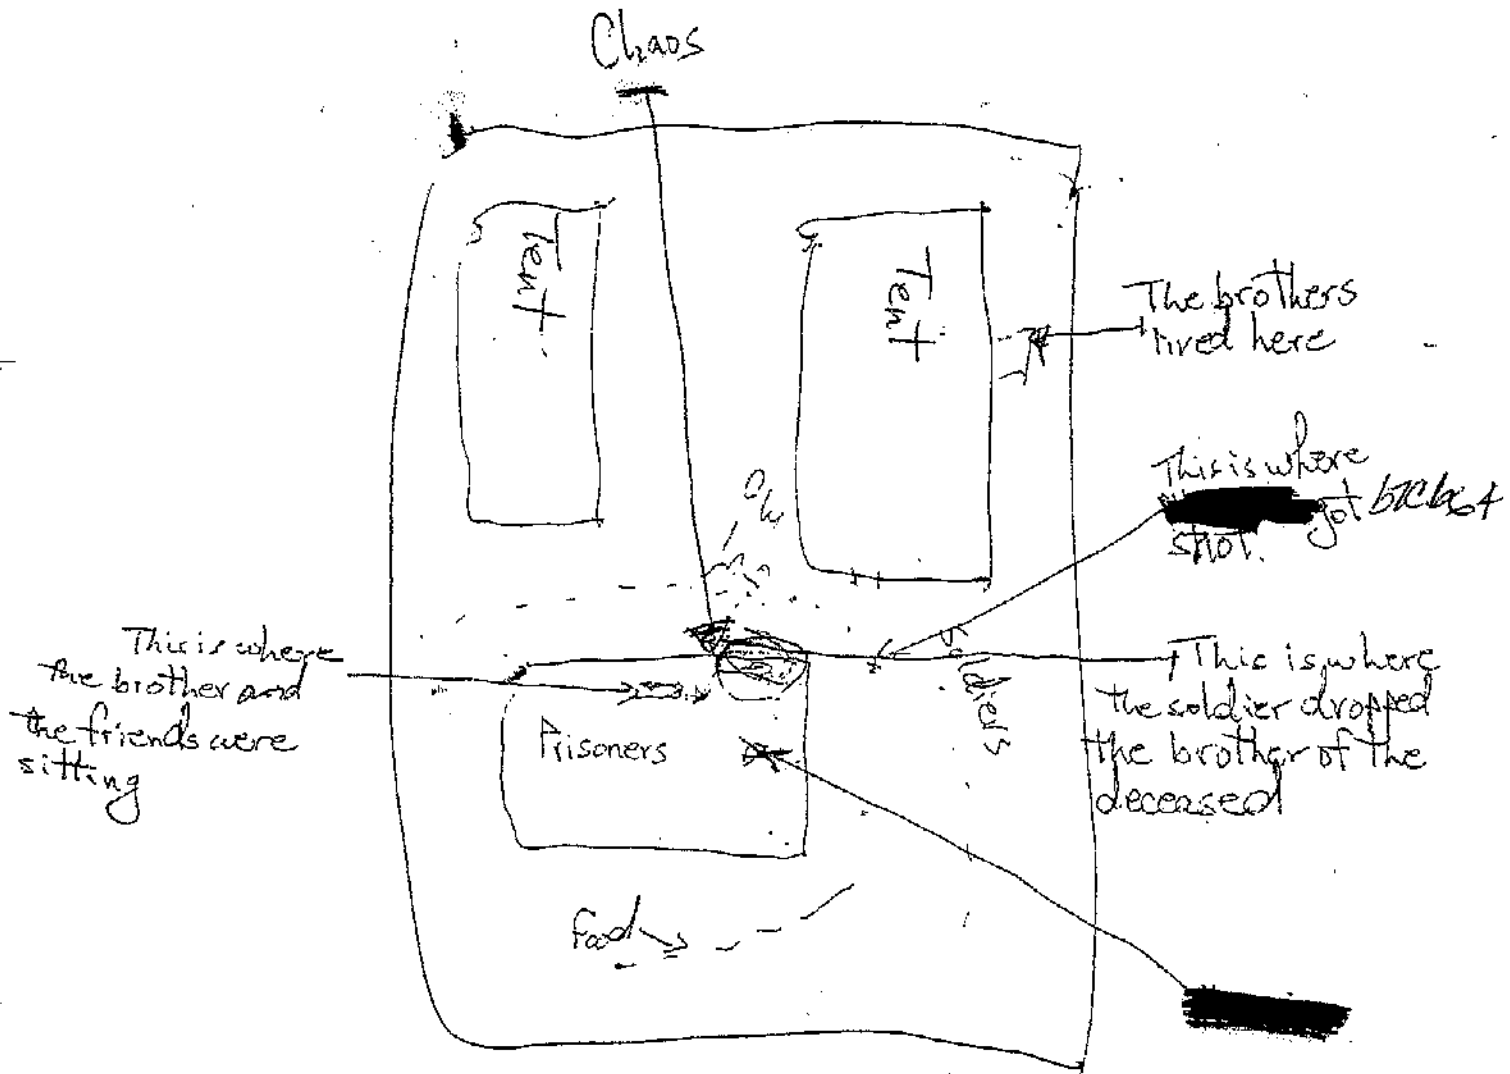 Chaos
Tent
Tent
The brothers
lived here
This is where
got
shot.
This is where
the brother and
the friends were
sitting
Soldiers
This is where
the soldier dropped
the brother of the
deceased
Prisoners
Food